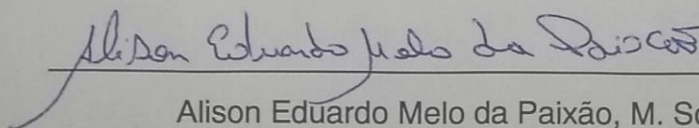 Alison Eduardo Melo da Paixão
Alison Eduardo Melo da Paixão, M. Sc